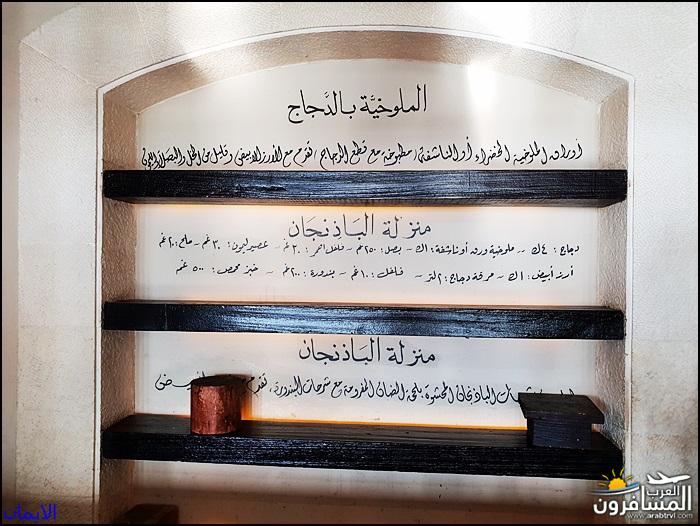 الملوخيَّة بالدَّجاج
أوراق الملوخية الخضراء أو الناشفة، مطبوخة مع قطع الدجاج، تقدم مع الأرز الأبيض وقليل من الخل والبصل
منزلة البَاذنجَان
دجاج: ٤ك -- ملوخية ورق أو ناشفة: ١ك -- بصل: ٢٥٠غم -- فلفل احمر: ٣٠غم -- عصير ليمون: ٣٠غم -- ملح: ٢٠غم
أرز أبيض: ١ك -- مرقة دجاج: ٢لتر -- فلفل: ١٠غم -- بندورة: ٢٠٠غم -- خبز محمص: ٥٠٠غم
منزلة البَاذنجَان
الباذنجان المحشوة بلحمة الضان المفرومة مع شرحات البندورة، تقدم
العرب
المسافرون
www.arabtrvl.com
الايمان